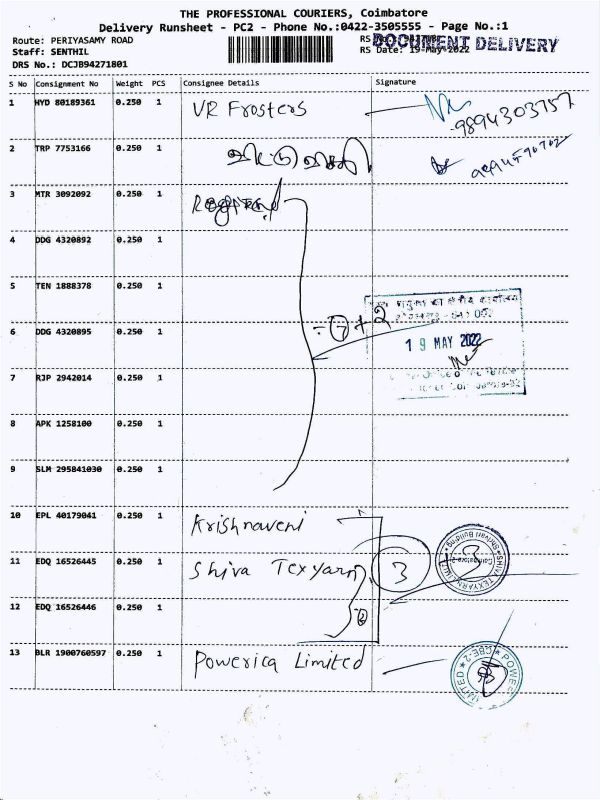 THE PROFESSIONAL COURIERS, Coimbatore
Delivery Runsheet - PC2 - Phone No.:0422-3505555 - Page No.:1
Route: PERIYASAMY ROAD
DOCUMENT DELIVERY
Staff: SENTHIL
RS Date: 19-May-2022
DRS No.: DCJB94271801
S No Consignment No Weight PCS Consignee Details Signature
1 HYD 80189361 0.250 1 VR Frosters 9894303757
2 TRP 7753166 0.250 1
3 MTR 3092092 0.250 1
4 DDG 4320892 0.250 1
5 TEN 1888378 0.250 1
6 DDG 4320895 0.250 1 = 7 + 2
19 MAY 2022
7 RJP 2942014 0.250 1
8 APK 1258100 0.250 1
9 SLM 295841030 0.250 1
10 EPL 40179041 0.250 1 Krishnaveni
11 EDQ 16526445 0.250 1 Shiva Texyarn 3 3
12 EDQ 16526446 0.250 1 2
13 BLR 1900760597 0.250 1 Powerica Limited
POWER LIMITED CBE-2